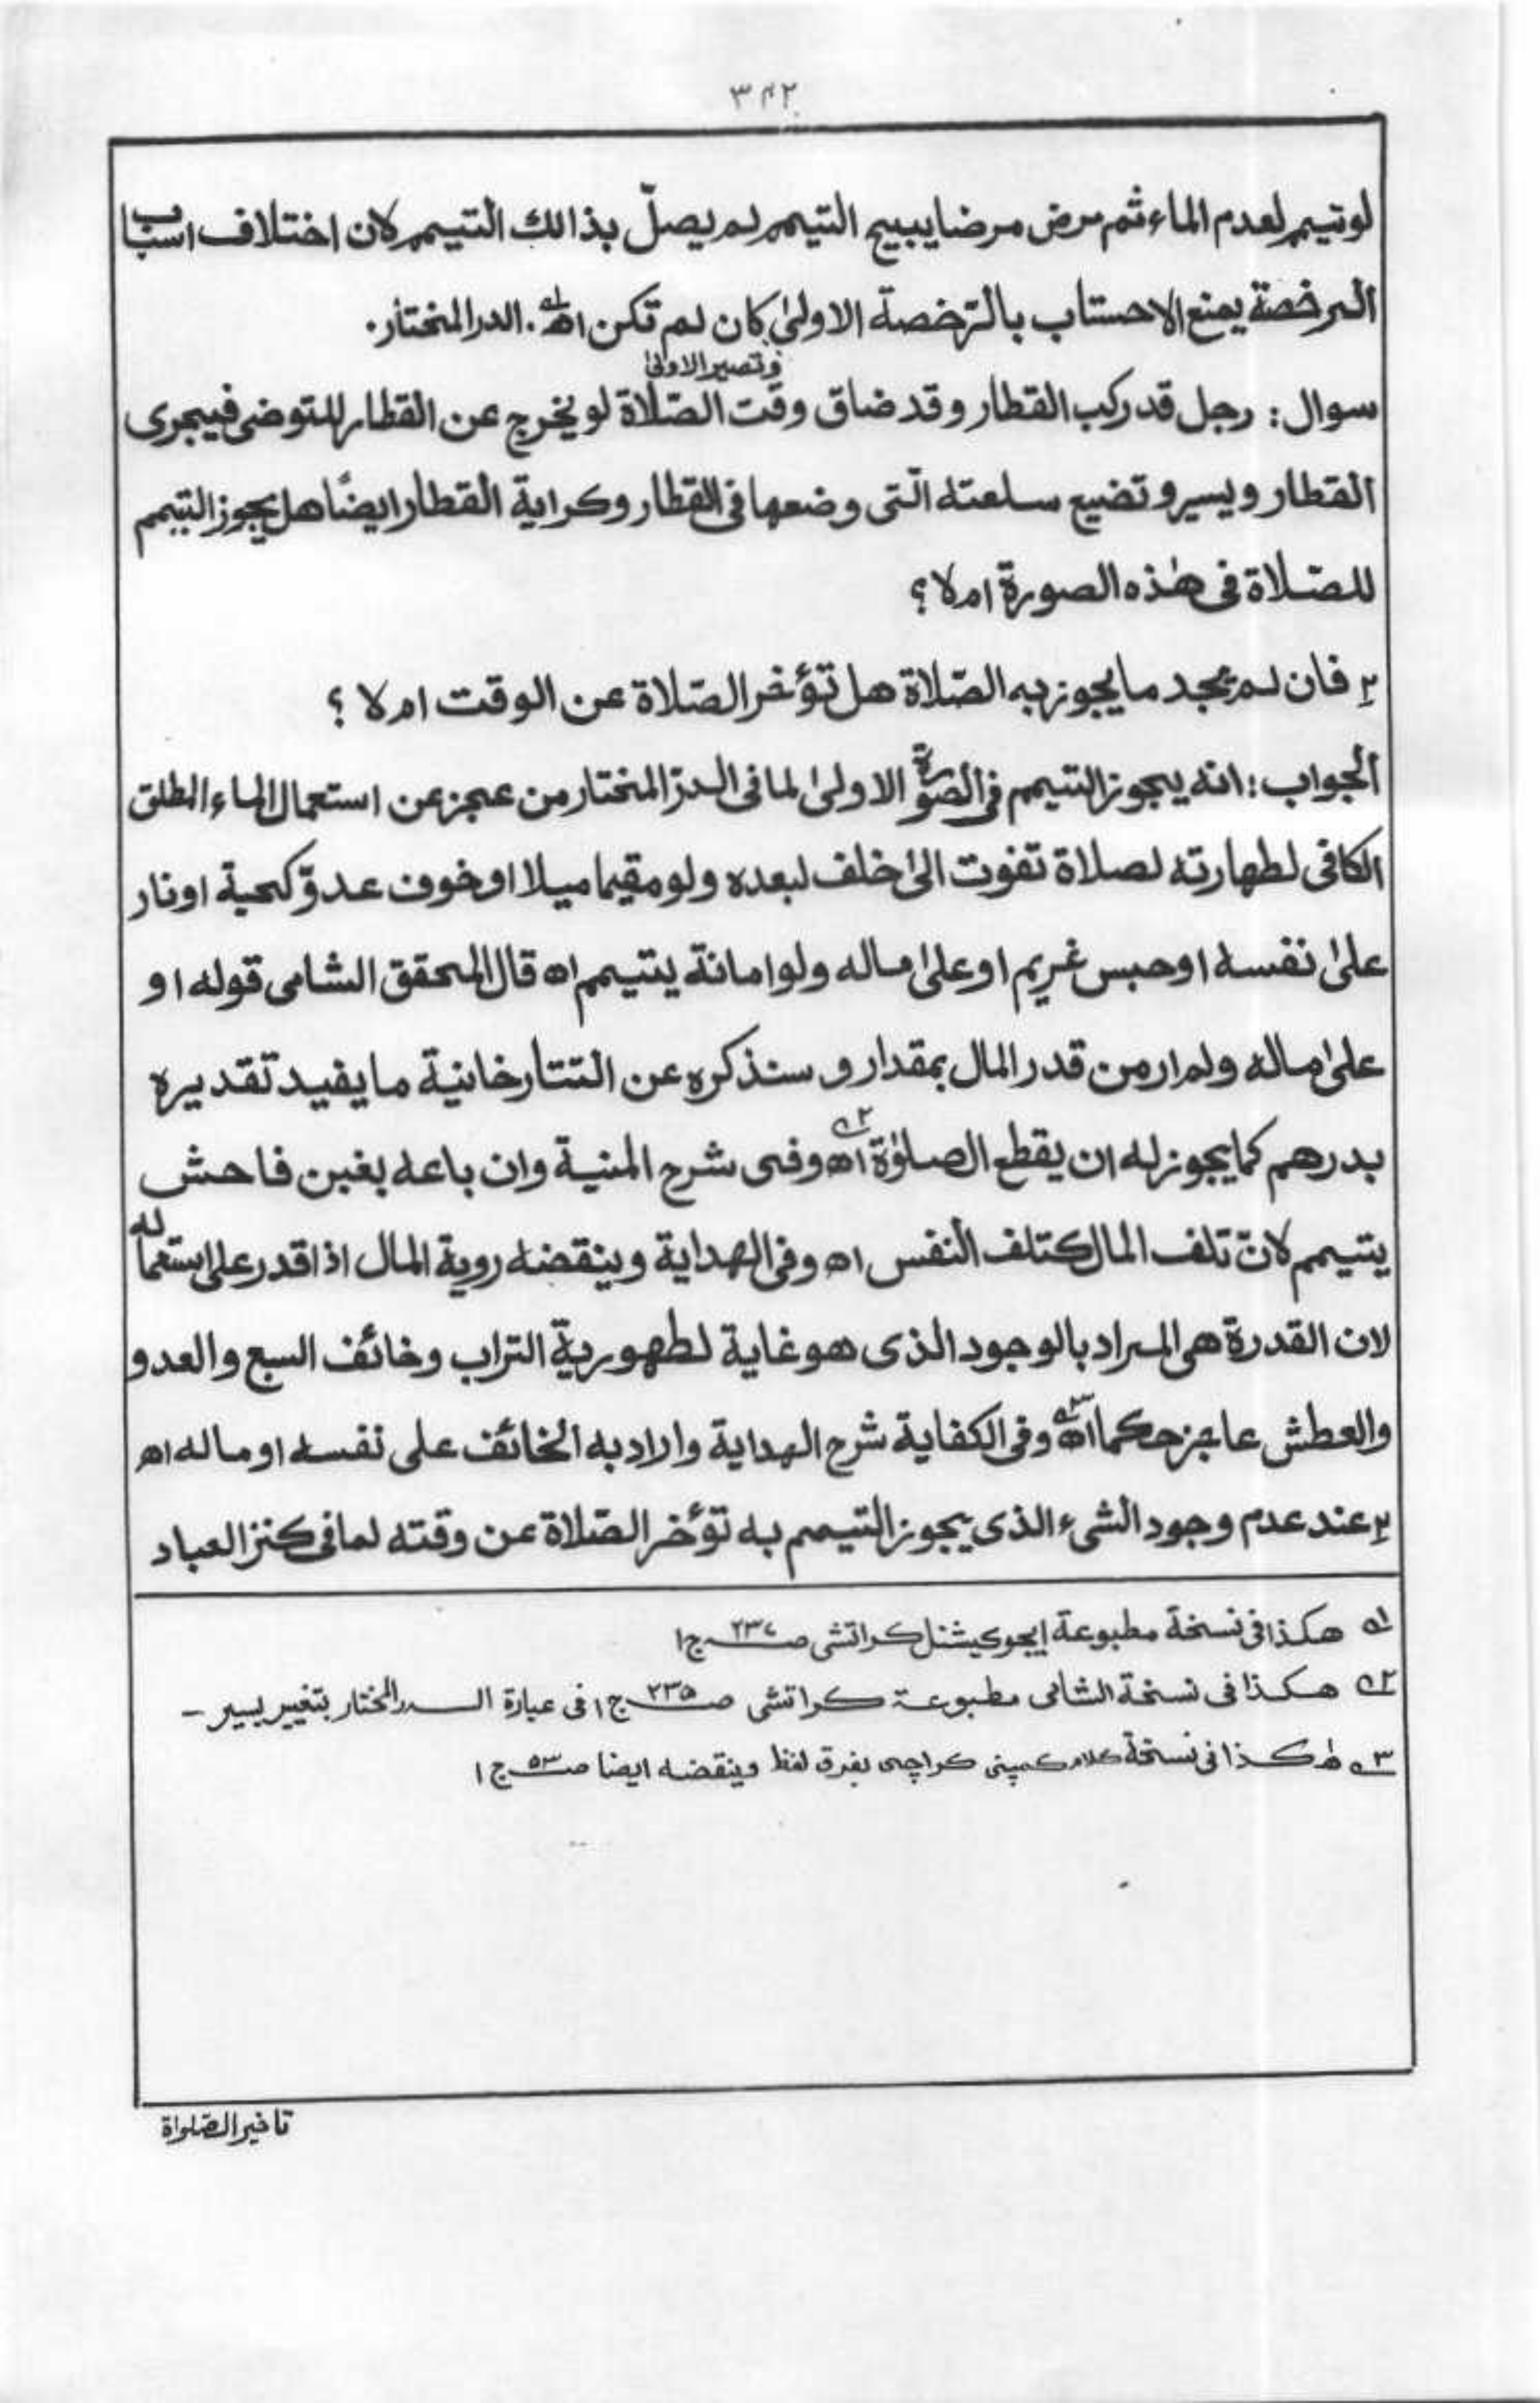 ٣٤٢
لوتیمم لعدم الماء ثم مرض مرضا یبیح التیمم لم یصلّ بذالك التیمم لان اختلاف اسباب
الرخصة یمنع الاحستاب بالرّخصة الاولیٰ کان لم تکن اھ١ہ. الدر المختار.
وتصیر الاولیٰ
سوال: رجل قد رکب القطار وقد ضاق وقت الصّلاة لو یخرج عن القطار للتوضی فیجری
القطار ویسیر و تضیع سلعته الّتی وضعها فی القطار وکرایة القطار ایضًا هل یجوز التیمم
للصّلاة فی هٰذه الصورة ام لا؟
٢ فان لم یجد ما یجوز به الصّلاة هل تؤخر الصّلاة عن الوقت ام لا؟
الجواب: انه یجوز التیمم فی الصّورة الاولیٰ لما فی الدرّ المختار من عجز عن استعمال الماء المطلق
الکافی لطهارته لصلاة تفوت الیٰ خلف لبعده ولو مقیما میلا او خوف عدوّ کحیة او نار
علیٰ نفسه او حبس غریم او علیٰ ماله ولو امانة یتیمم اھ قال المحقق الشامی قوله او
علیٰ ماله ولم ار من قدر المال بمقدار و سنذکره عن التتارخانیة ما یفید تقدیره
بدرهم کما یجوز له ان یقطع الصلوٰة اھ٢ہ وفی شرح المنیة وان باعه بغبن فاحش
یتیمم لانّ تلف المال کتلف النفس اھ وفی الهدایة وینقضه رویة المال اذا قدر علی استعماله
لان القدرة هی المراد بالوجود الذی هو غایة لطهوریة التراب وخائف السبع والعدو
والعطش عاجز حکما اھ٣ہ وفی الکفایة شرح الهدایة واراد به الخائف علی نفسه او ماله اھ
٢ عند عدم وجود الشیء الذی یجوز التیمم به تؤخر الصّلاة عن وقته لما فی کنز العباد
١ہ هکذا فی نسخة مطبوعة ایجوکیشنل کراتشی صـ ج١
٢ہ هکذا فی نسخة الشامی مطبوعة کراتشی صـ٢٣٥ ج١ فی عبارة الدر المختار بتغییر یسیر ـ
٣ہ هٰکذا فی نسخة کلام کمپنی کراچی بفرق لفظ وینقضه ایضا صـ٥٣ ج١
تاخیر الصّلواة